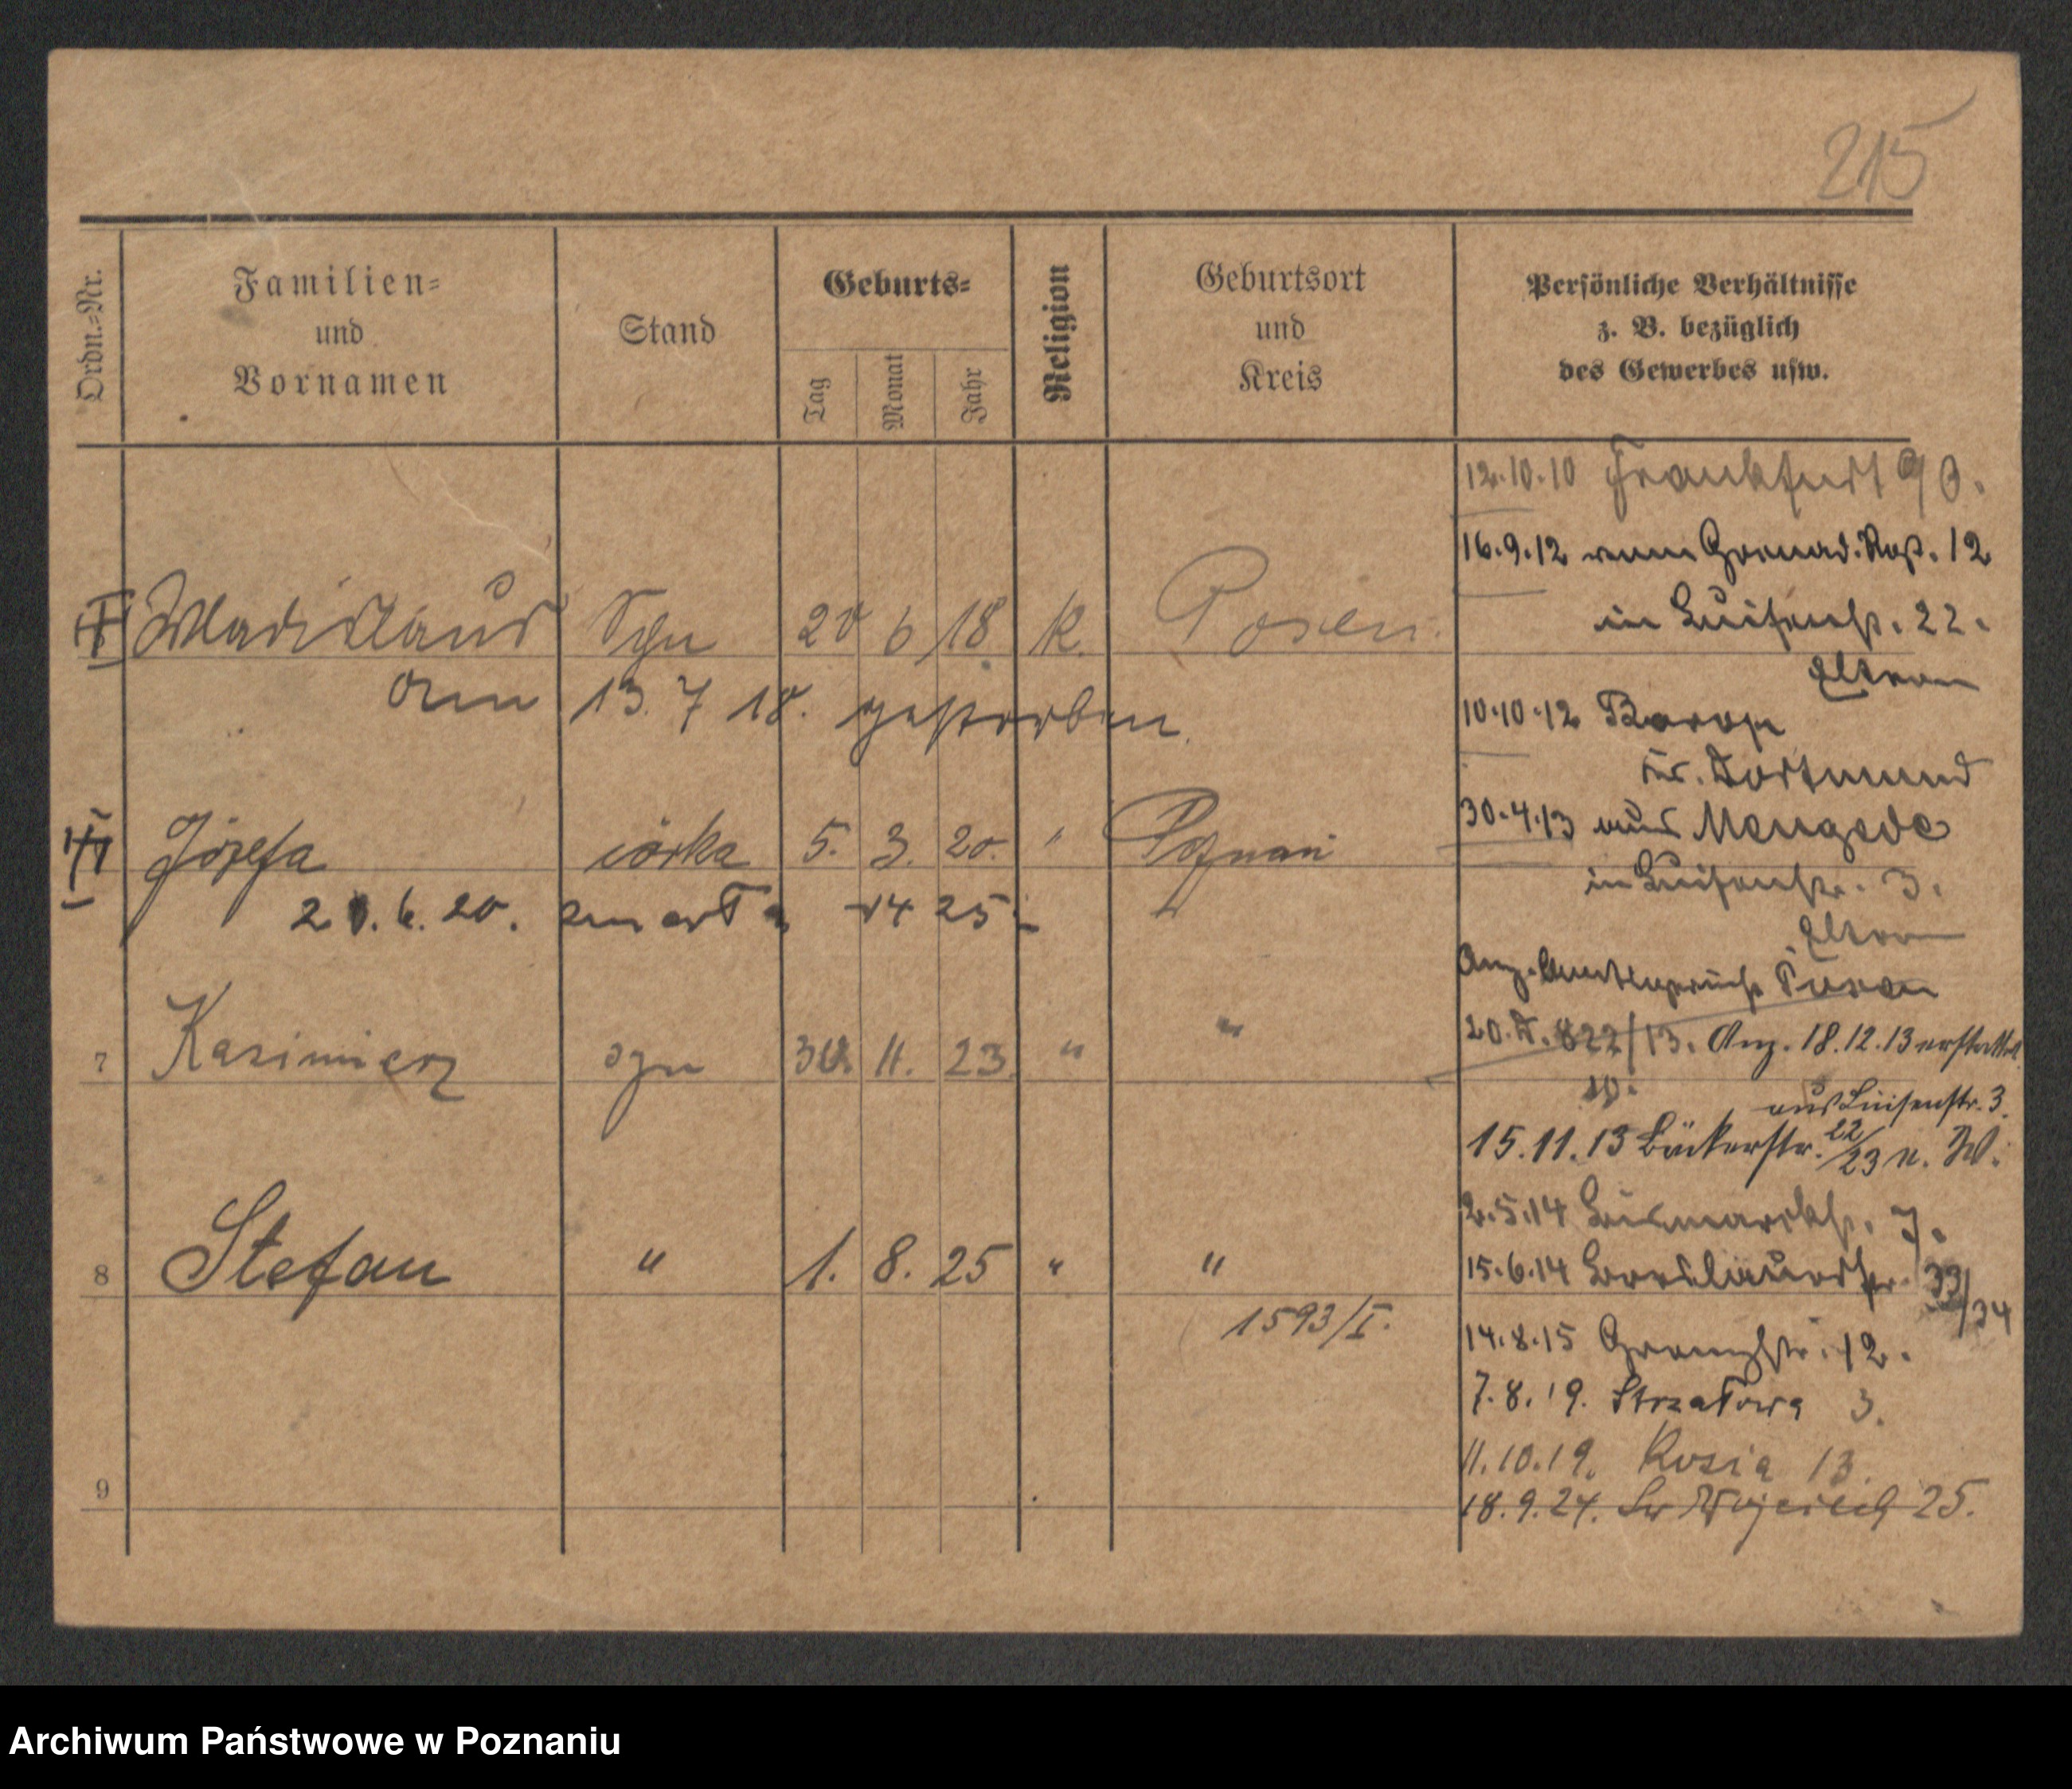 215
Ordn.=Nr.
Familien=
und
Vornamen
Stand
Geburts=
Tag
Monat
Jahr
Religion
Geburtsort
und
Kreis
Persönliche Verhältnisse
z. B. bezüglich
des Gewerbes usw.
Wladislaus Syn 20 6 18 K. Posen.
am 13. 7 18. gestorben.
Józefa córka 5. 3. 20. " Poznań
6. 20. zmarła 25
7 Kasimierz syn 30. 11. 23. " "
8 Stefan " 1. 8. 25 " "
1593/I.
9
12.10.10 Frankfurt O.
16.9.12 vom Grenad. Regt. 12
in Luisenstr. 22.
Eltern
10.10.12 Barop
Kr. Dortmund
30.4.13 aus Mengede
in Luisenstr. 3.
Eltern
Anz. Posen
20. 822/13. Anz. 18.12.13 erstattet
aus Luisenstr. 3.
15.11.13 Bäckerstr. 22/23 n. W.
2.5.14 Bismarckstr. 7.
15.6.14 Breslauerstr. 33/34
14.8.15 Grenzstr. 12.
7.8.19. Strzałowa 3.
11.10.19. Kosia 13.
18.9.24. Św Wojciech 25.
Archiwum Państwowe w Poznaniu